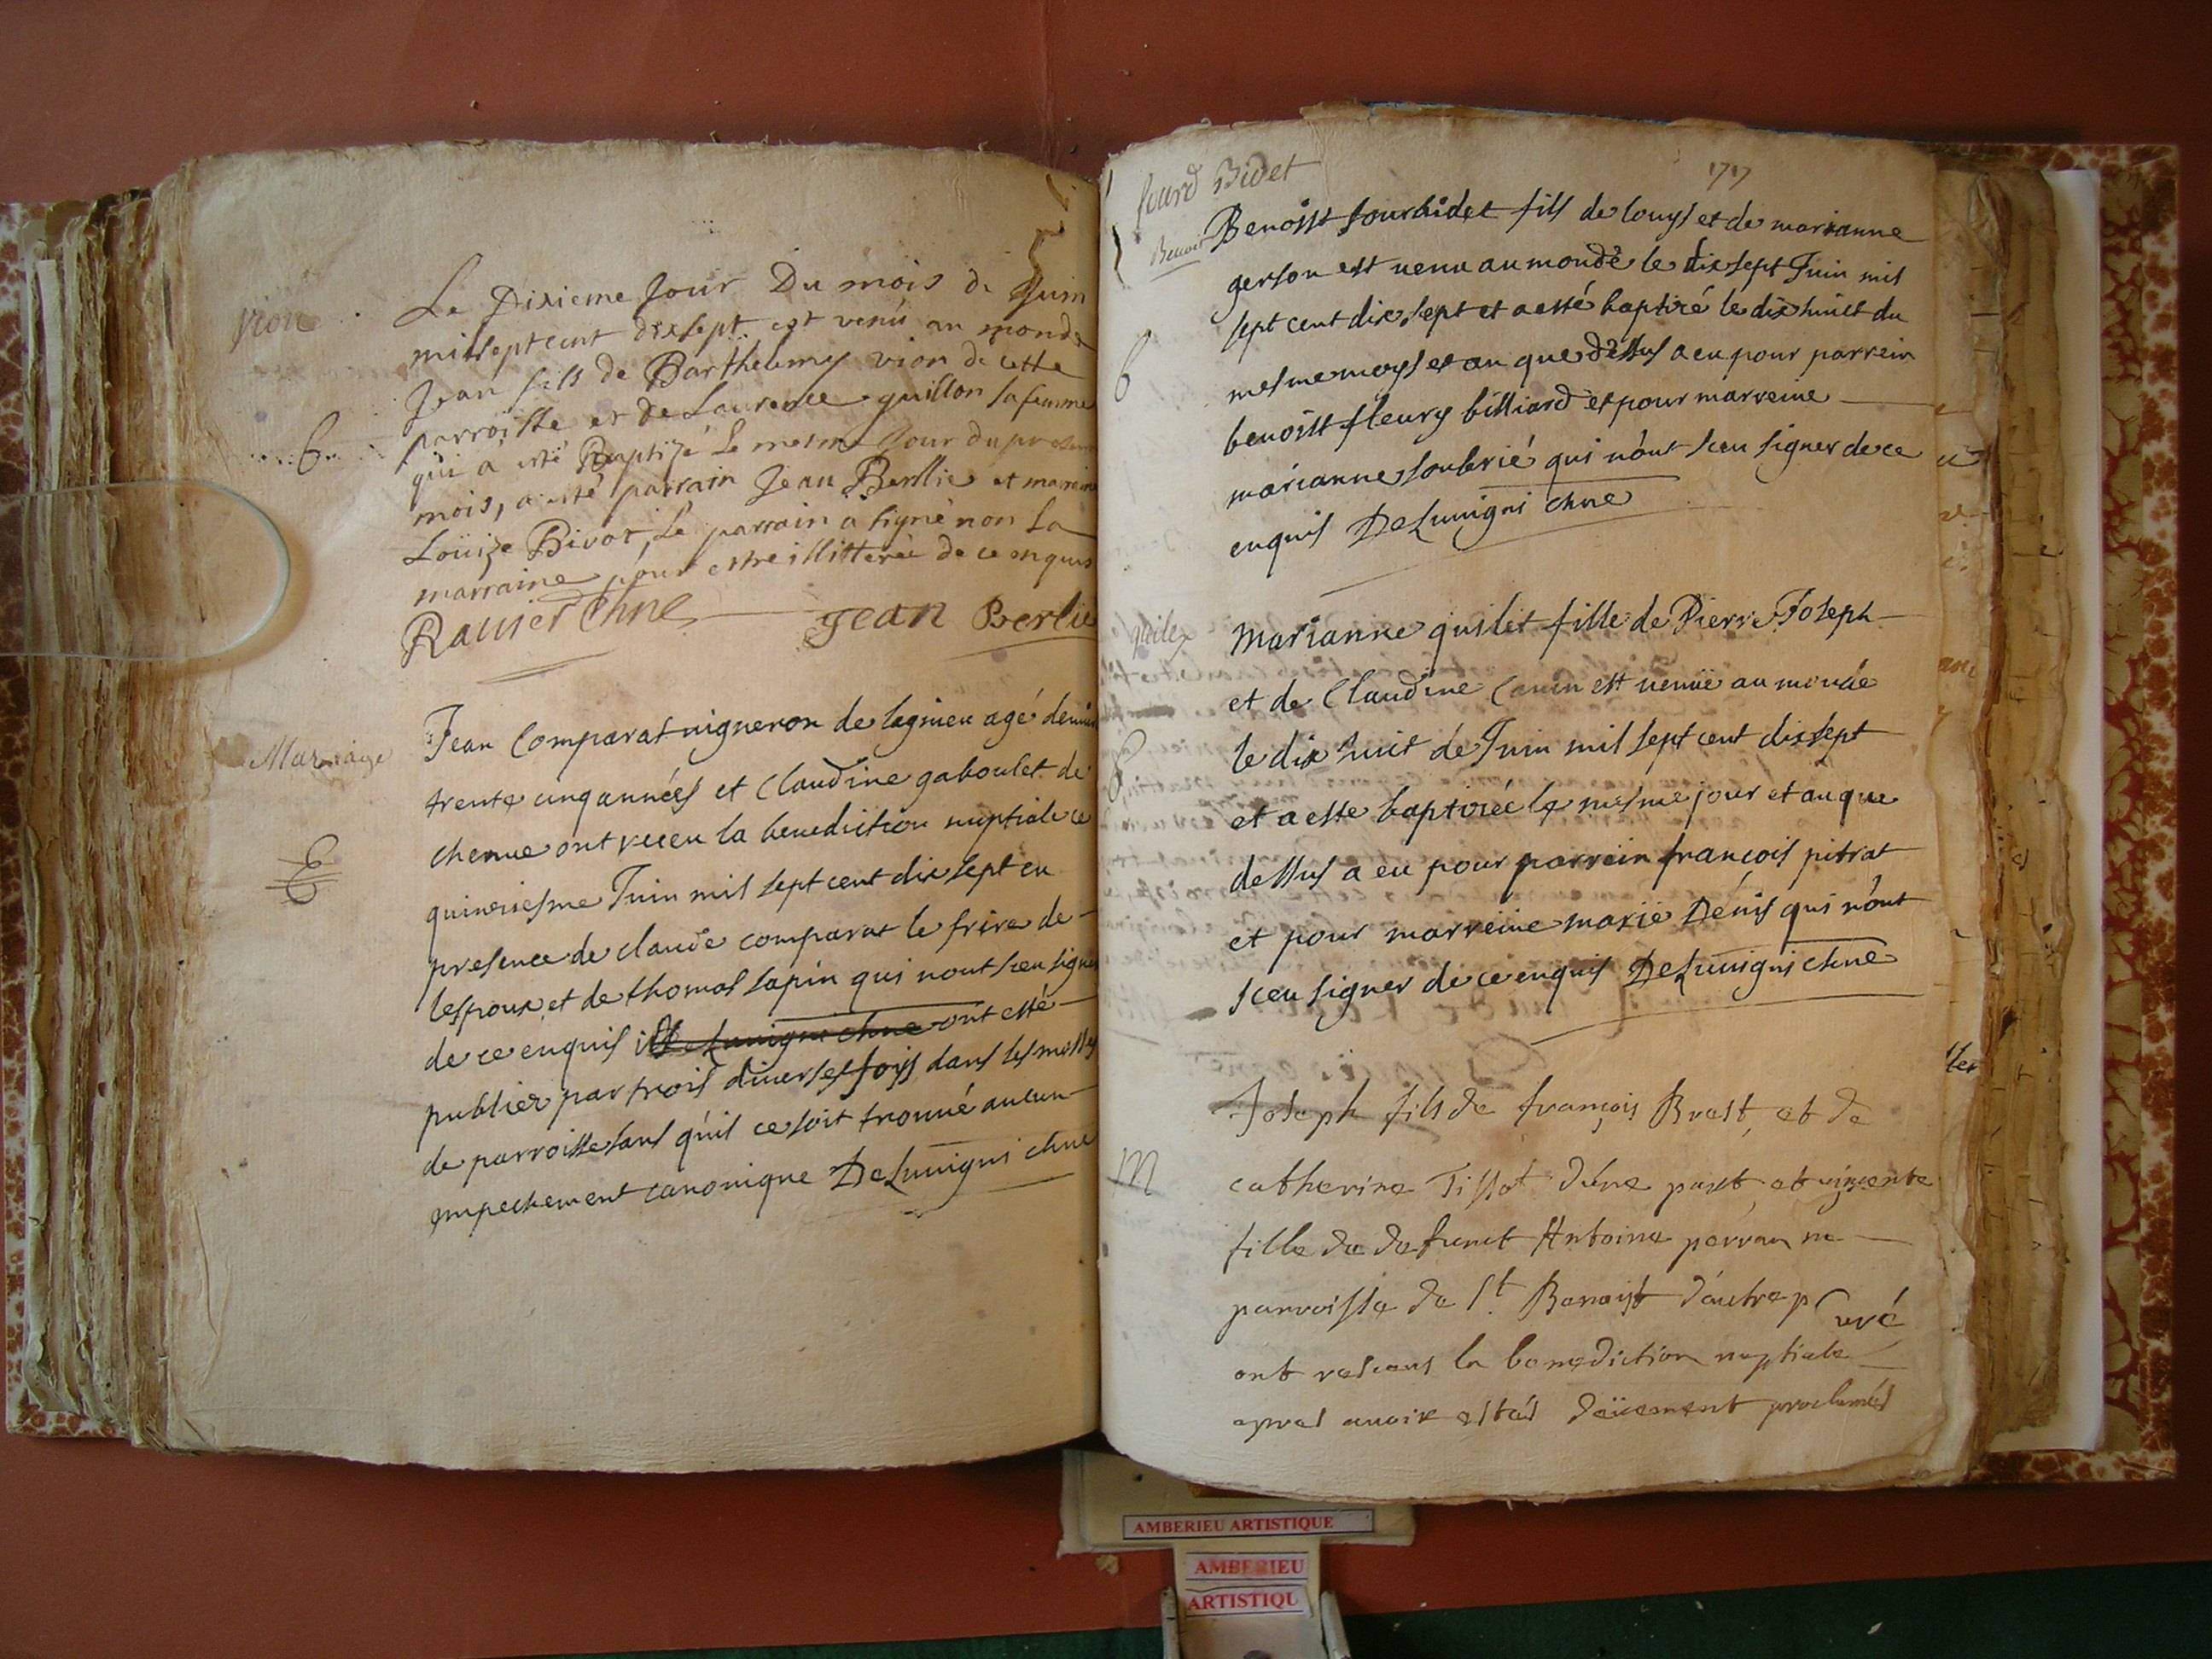 vion
Le Dixieme Jour Du mois de Juin
mil sept cent dixsept est venu au monde
Jean fils de Barthelemy vion de cette
parroisse et de Laurence guillon sa femme
b
qui a esté Baptizé Le mesme Jour du present
mois, a esté parrain Jean Berllie et marraine
Loüize Bivot, Le parrain a signé non La
marraine pour estre illitterée de ce enquis
Ravier chne Jean Berlie
Mariage
Jean Comparat vigneron de lagnieu agé denviron
trente cinq années et Claudine gaboulet de
chenue ont receu la benediction nuptiale ce
quinziesme Juin mil sept cent dix sept en
presence de claude comparat le frere de
lespoux et de thomas sapin qui nont sceu signer
de ce enquis ils DeLuvigni chne ont esté
publiez par trois diverses foys dans les messes
de parroisse sans qu'il ce soit trouvé aucun
empechement canonique DeLuvigni chne
fourd Bidet
1717
Benoit
Benoist fourbidet fils de louys et de marianne
gerson est venu au monde le dix sept Juin mil
sept cent dix sept et a esté baptizé le dix huict du
b
mesme moys et an que dessus a eu pour parrein
benoist fleury billiard et pour marreine
marianne souberié qui n'ont sceu signer de ce
enquis DeLuvigni chne
quilet
marianne quilet fille de Pierre Joseph
et de Claudine Canin est venüe au monde
b
le dix huit de Juin mil sept cent dix sept
et a esté baptizée le mesme jour et an que
dessus a eu pour parrein françois pitrat
et pour marreine marie Denis qui n'ont
sceu signer de ce enquis DeLuvigni chne
Joseph fils de françois Brest, et de
M
catherine Tissot d'une part et vincente
fille de defunct Antoine perran ne
parroisse de St. Benoist d'autre p
uré
ont receus la benediction nuptiale
apres avoir estés deüement proclamés
AMBERIEU ARTISTIQUE
AMBERIEU
ARTISTIQU